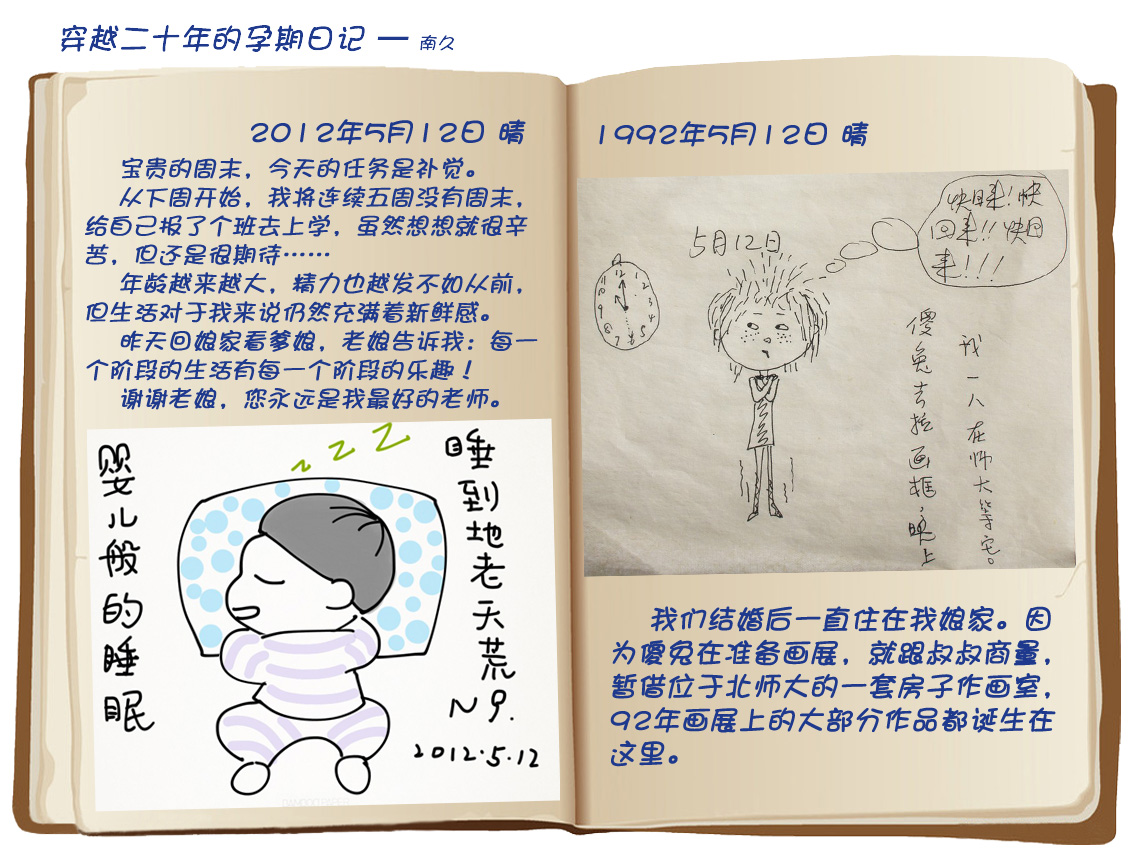 穿越二十年的孕期日记 — 南久
2012年5月12日 晴
宝贵的周末，今天的任务是补觉。
从下周开始，我将连续五周没有周末，
给自己报了个班去上学，虽然想想就很辛
苦，但还是很期待……
年龄越来越大，精力也越发不如从前，
但生活对于我来说仍然充满着新鲜感。
昨天回娘家看爹娘，老娘告诉我：每一
个阶段的生活有每一个阶段的乐趣！
谢谢老娘，您永远是我最好的老师。
婴儿般的睡眠
zzZ
睡到地老天荒
N9.
2012.5.12
1992年5月12日 晴
快回来！快
回来！！快回
来！！！
5月12日
12
1
2
3
4
5
6
7
8
9
10
11
我一人在师大等它。
傻兔去拉画框，晚上
我们结婚后一直住在我娘家。因
为傻兔在准备画展，就跟叔叔商量，
暂借位于北师大的一套房子作画室，
92年画展上的大部分作品都诞生在
这里。